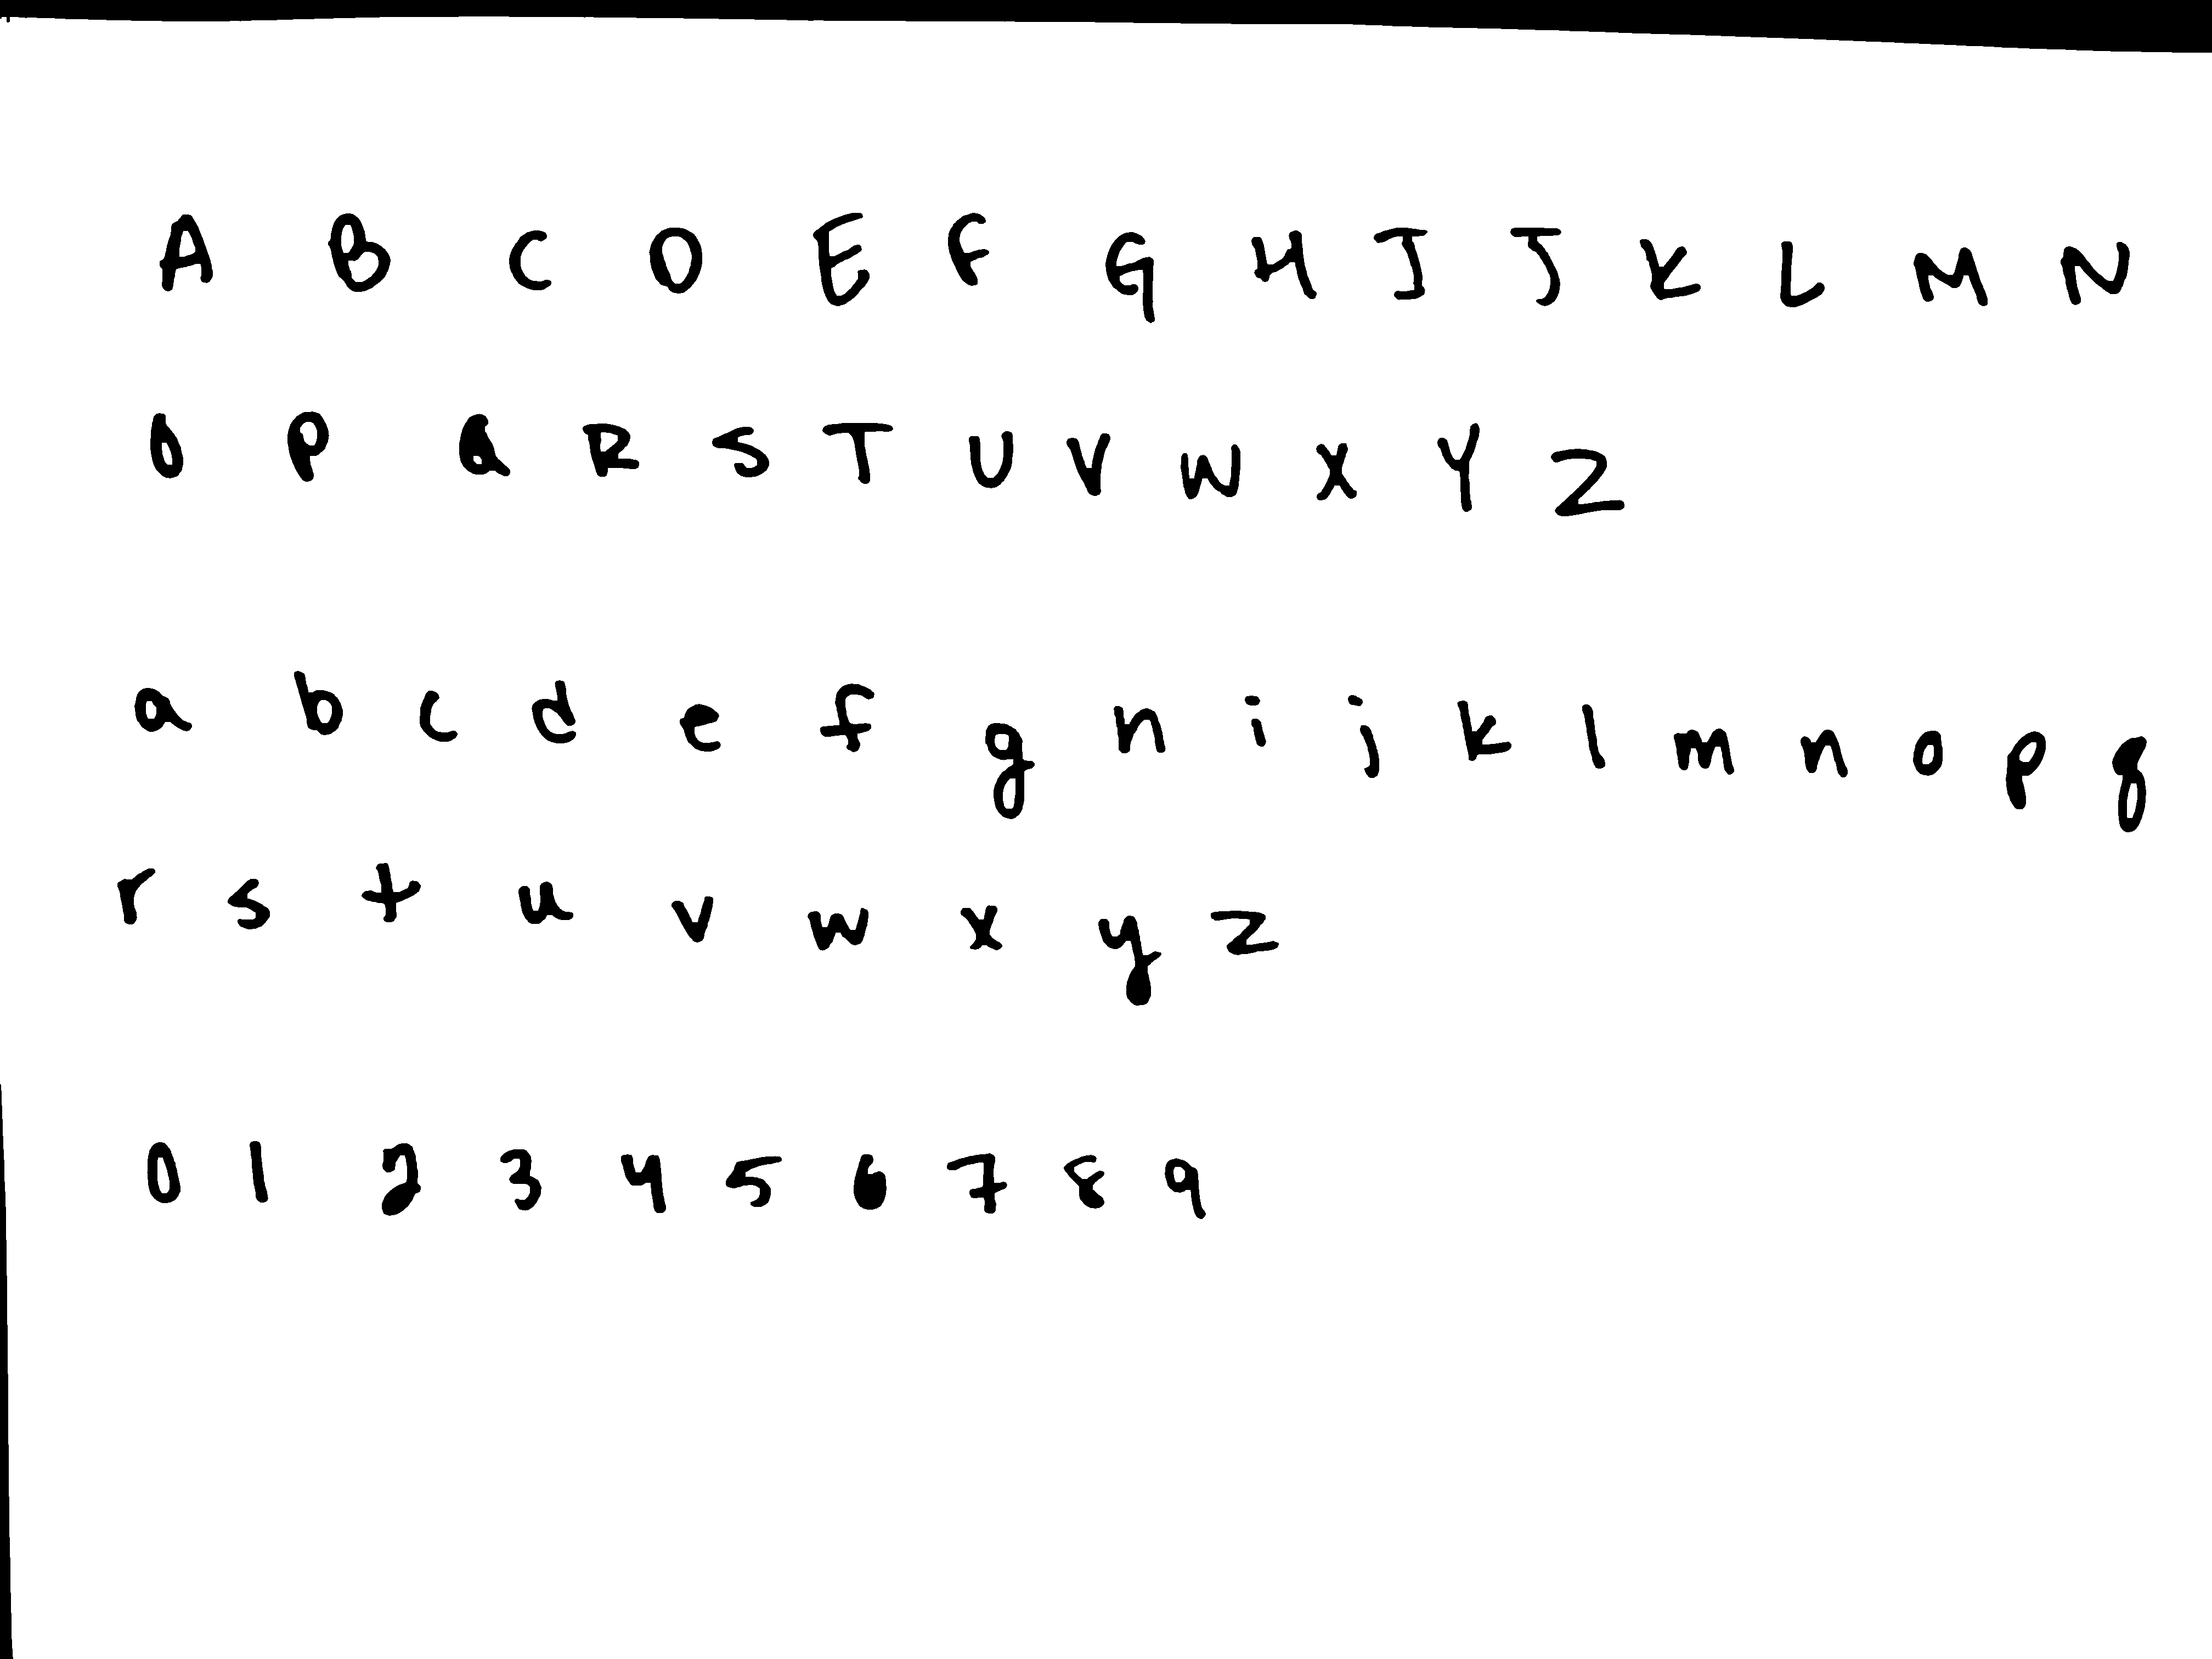 A B C D E F G H I J K L M N
O P Q R S T U V W X Y Z
a b c d e f g h i j k l m n o p q
r s t u v w x y z
0 1 2 3 4 5 6 7 8 9